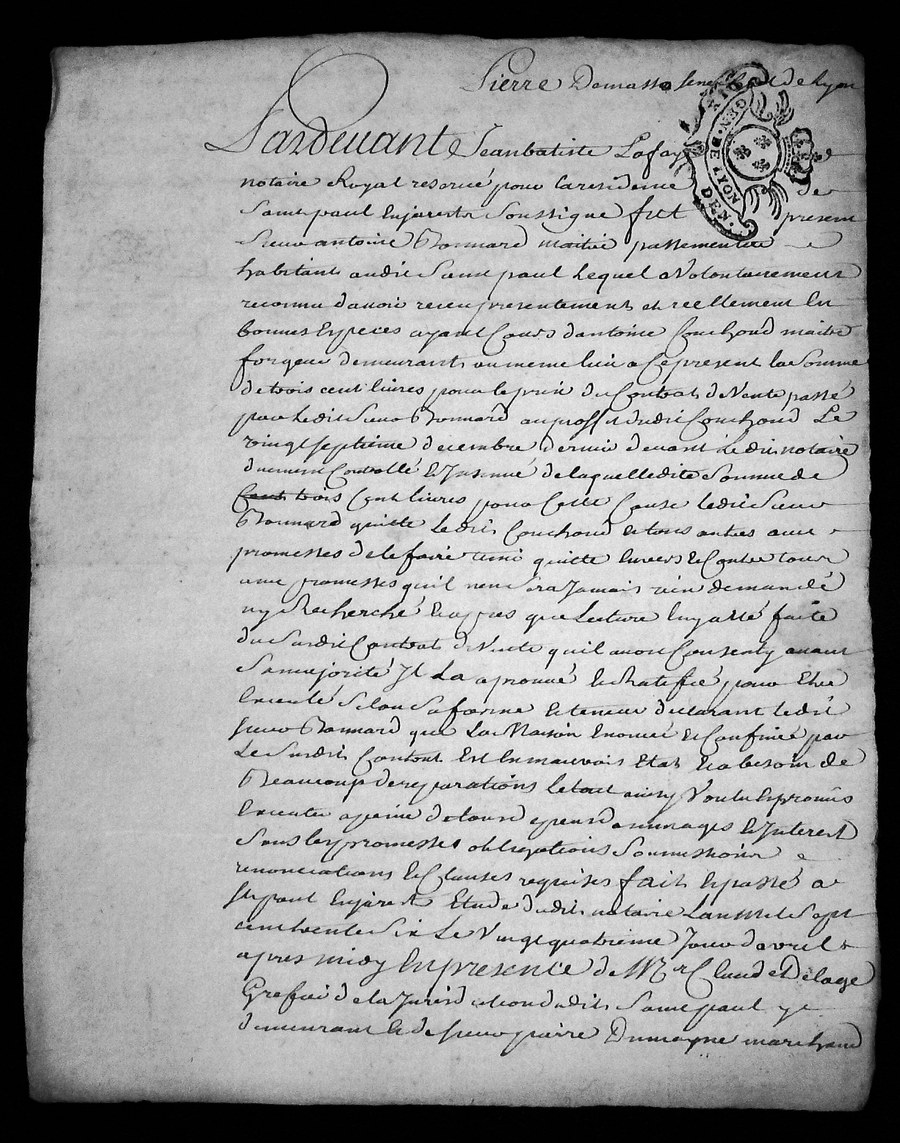 Pierre Demasso senechal de Lyon
GEN. DE LYON
DEN.
Pardevant Jeanbatiste Lafay
notaire Royal reservé pour la residence de
Saint paul Enjarests Soussigné fut present
Sieur antoine Bonnard maitre passementier
habitant audit Saint paul Lequel a Volontairement
reconnu davoir receu presentement et reellement En
bonnes Especes ayant Cours dantoine Couchoud maitre
forgeur demeurant au meme lieu a Ce present La Somme
de trois cent livres pour le prix du Contrat de Vente passé
par Ledit Sieur Bonnard au proffit dudit Couchoud Le
vingt septieme decembre dernier devant Ledit notaire
duement Controllé et Insinué de laquelle dite Somme de
trois Cent livres pour Cette Cause ledit Sieur
Bonnard quitte Ledit Couchoud et tous autres avec
promesses de le faire tenir quitte Envers et Contre tous
avec promesses quil nen Sera Jamais rien demandé
ny Recherché Et apres que Lecture luy a été faite
du Susdit Contrat de Vente quil avoit Consenty avant
Sa majorité Il La aprouvé et Ratifié pour Etre
Executé Selon Sa forme et teneur declarant ledit
Sieur Bonnard que La Maison Enoncée et Confinée par
Le Susdit Contrat Est En mauvais Etat Et a besoin de
Beaucoup de reparations le tout ainsy Voulu et promis
Executer a peine de tous depens dommages et Interest
Sous les promesses obligations Soumissions
renonciations et Clauses requises fait et passé a
St paul Enjarest Etude dudit notaire Lan mil Sept
cent trente Six Le Vingt quatrieme Jour davril
apres midy En presence de Mr Claude Delage
Grefier de la Jurisdiction dudit Saint paul y
demeurant et de Sieur pierre Dumayne marchand